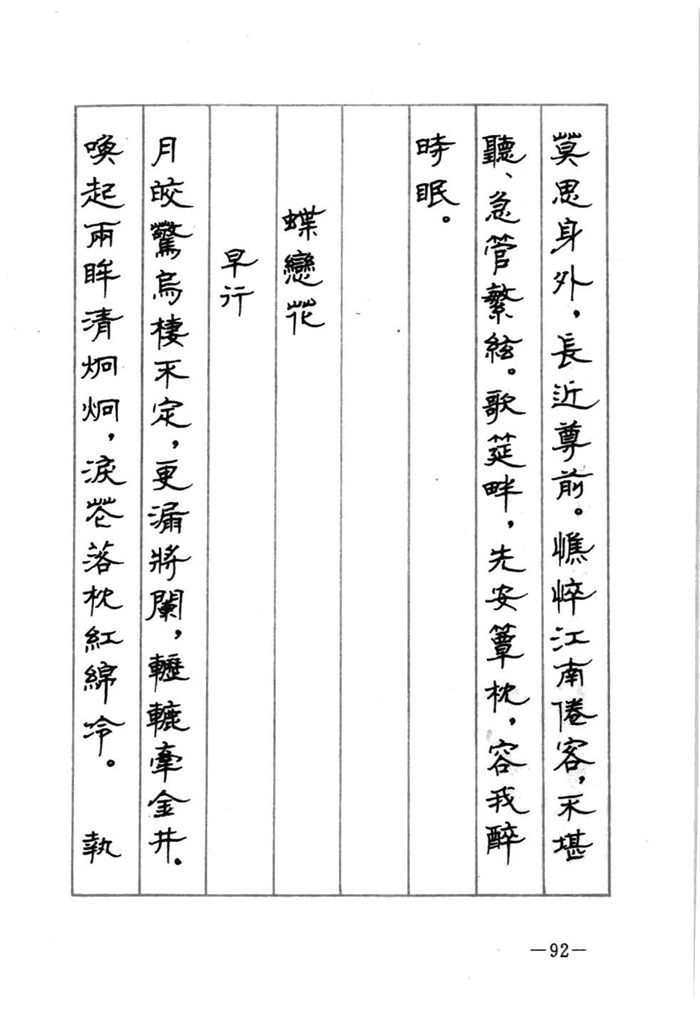 莫思身外，長近尊前。憔悴江南倦客，不堪
聽、急管繁絃。歌筵畔，先安簟枕，容我醉
時眠。
蝶戀花
早行
月皎驚烏棲不定，更漏將闌，轣轆牽金井。
喚起兩眸清炯炯，淚花落枕紅綿冷。　執
—92—